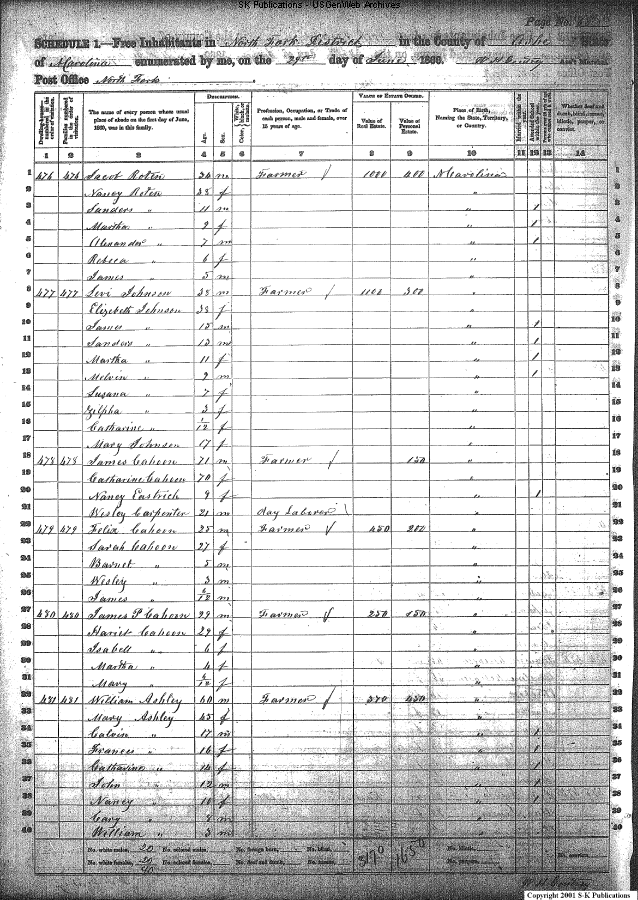 S-K Publications - USGenWeb Archives
Page No.
SCHEDULE 1.—Free Inhabitants in North Fork District in the County of Ashe State
of N Carolina enumerated by me, on the 29th day of June 1860. Ass't Marshal
Post Office North Fork
Dwelling-houses—numbered in the order of visitation.
Families numbered in the order of visitation.
The name of every person whose usual place of abode on the first day of June, 1860, was in this family.
DESCRIPTION.
Age.
Sex.
Color, White, black, or mulatto.
Profession, Occupation, or Trade of each person, male and female, over 15 years of age.
VALUE OF ESTATE OWNED.
Value of Real Estate.
Value of Personal Estate.
Place of Birth, Naming the State, Territory, or Country.
Married within the year.
Whether deaf and dumb, blind, insane, idiotic, pauper, or convict.
1 2 3 4 5 6 7 8 9 10 11 12 13 14
1 476 476 Jacob Roten 34 m Farmer 1000 400 N Carolina 1
2 Nancy Roten 38 f " 2
3 Sanders " 11 m " 1 3
4 Martha " 9 f " 1 4
5 Alexander " 7 m " 1 5
6 Rebeca " 6 f " 6
7 James " 5 m " 7
8 477 477 Levi Johnson 38 m Farmer 1100 300 " 8
9 Elizabeth Johnson 38 f " 9
10 James " 15 m " 1 10
11 Sanders " 13 m " 1 11
12 Martha " 11 f " 1 12
13 Melvin " 9 m " 1 13
14 Susana " 7 f " 14
15 Zilpha " 3 f " 15
16 Catharine " 1/12 f " 16
17 Mary Johnson 17 f " 17
18 478 478 James Cahoon 71 m Farmer 150 " 18
19 Catharine Cahoon 70 f " 19
20 Nancy Eastrich 9 f " 1 20
21 Wesley Carpenter 21 m day Laborer " 21
22 479 479 Felix Cahoon 25 m Farmer 450 200 " 22
23 Sarah Cahoon 27 f " 23
24 Barnet " 5 m " 24
25 Wesley " 3 m " 25
26 James " m " 26
27 480 480 James P Cahoon 29 m Farmer 250 150 " 27
28 Hariet Cahoon 29 f " 28
29 Isabell " 6 f " 29
30 Martha " 4 f " 30
31 Mary " f " 31
32 481 481 William Ashley 60 m Farmer 370 450 " 32
33 Mary Ashley 45 f " 33
34 Calvin " 17 m " 1 34
35 Frances " 16 f " 1 35
36 Catharine " 14 f " 1 36
37 John " 12 m " 1 37
38 Nancy " 10 f " 1 38
39 Cary " 8 m " 39
40 William " 3 m " 40
No. white males, 20 No. colored males, No. foreign born, No. blind,
No. white females, 20 No. colored females, No. deaf and dumb, No. insane,
40 1650 No. idiotic, No. paupers, No. convicts,
Copyright 2001 S-K Publications